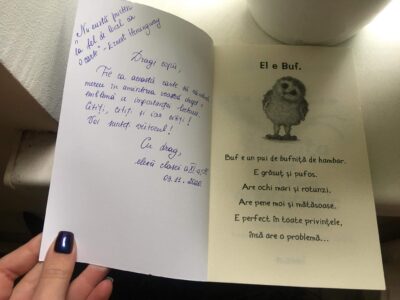 „Nu există prieten
la fel de loial ca
o carte" - Ernest Hemingway
Dragi copii,
Fie ca această carte să
mereu în amintirea voastră drept
emblemă a importanței lecturii.
Citiți, citiți și iar citiți!
Voi sunteți viitorul!
Cu drag,
elevii clasei a XI-a
03.11.2020
El e Buf.
Buf e un pui de bufniță de hambar.
E grăsuț și pufos.
Are ochi mari și rotunzi.
Are pene moi și mătăsoase.
E perfect în toate privințele,
însă are o problemă...